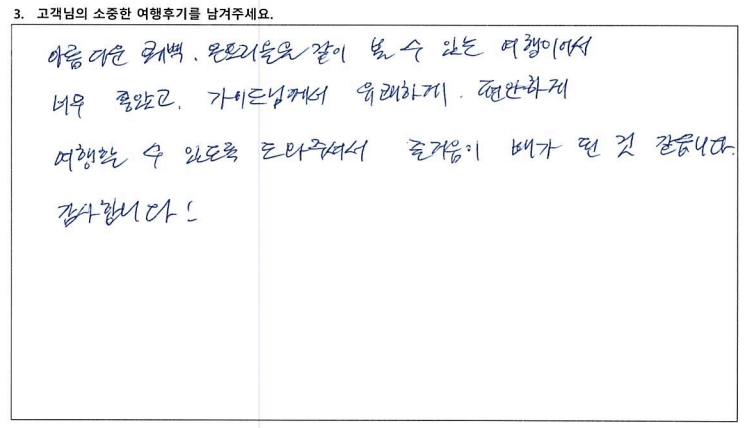 3. 고객님의 소중한 여행후기를 남겨주세요.
아름다운 퀘벡. 몬트리올을 같이 볼 수 있는 여행이어서
너무 좋았고, 가이드님께서 유쾌하게. 편안하게
여행할 수 있도록 도와주셔서 즐거움이 배가 된 것 같습니다.
감사합니다!